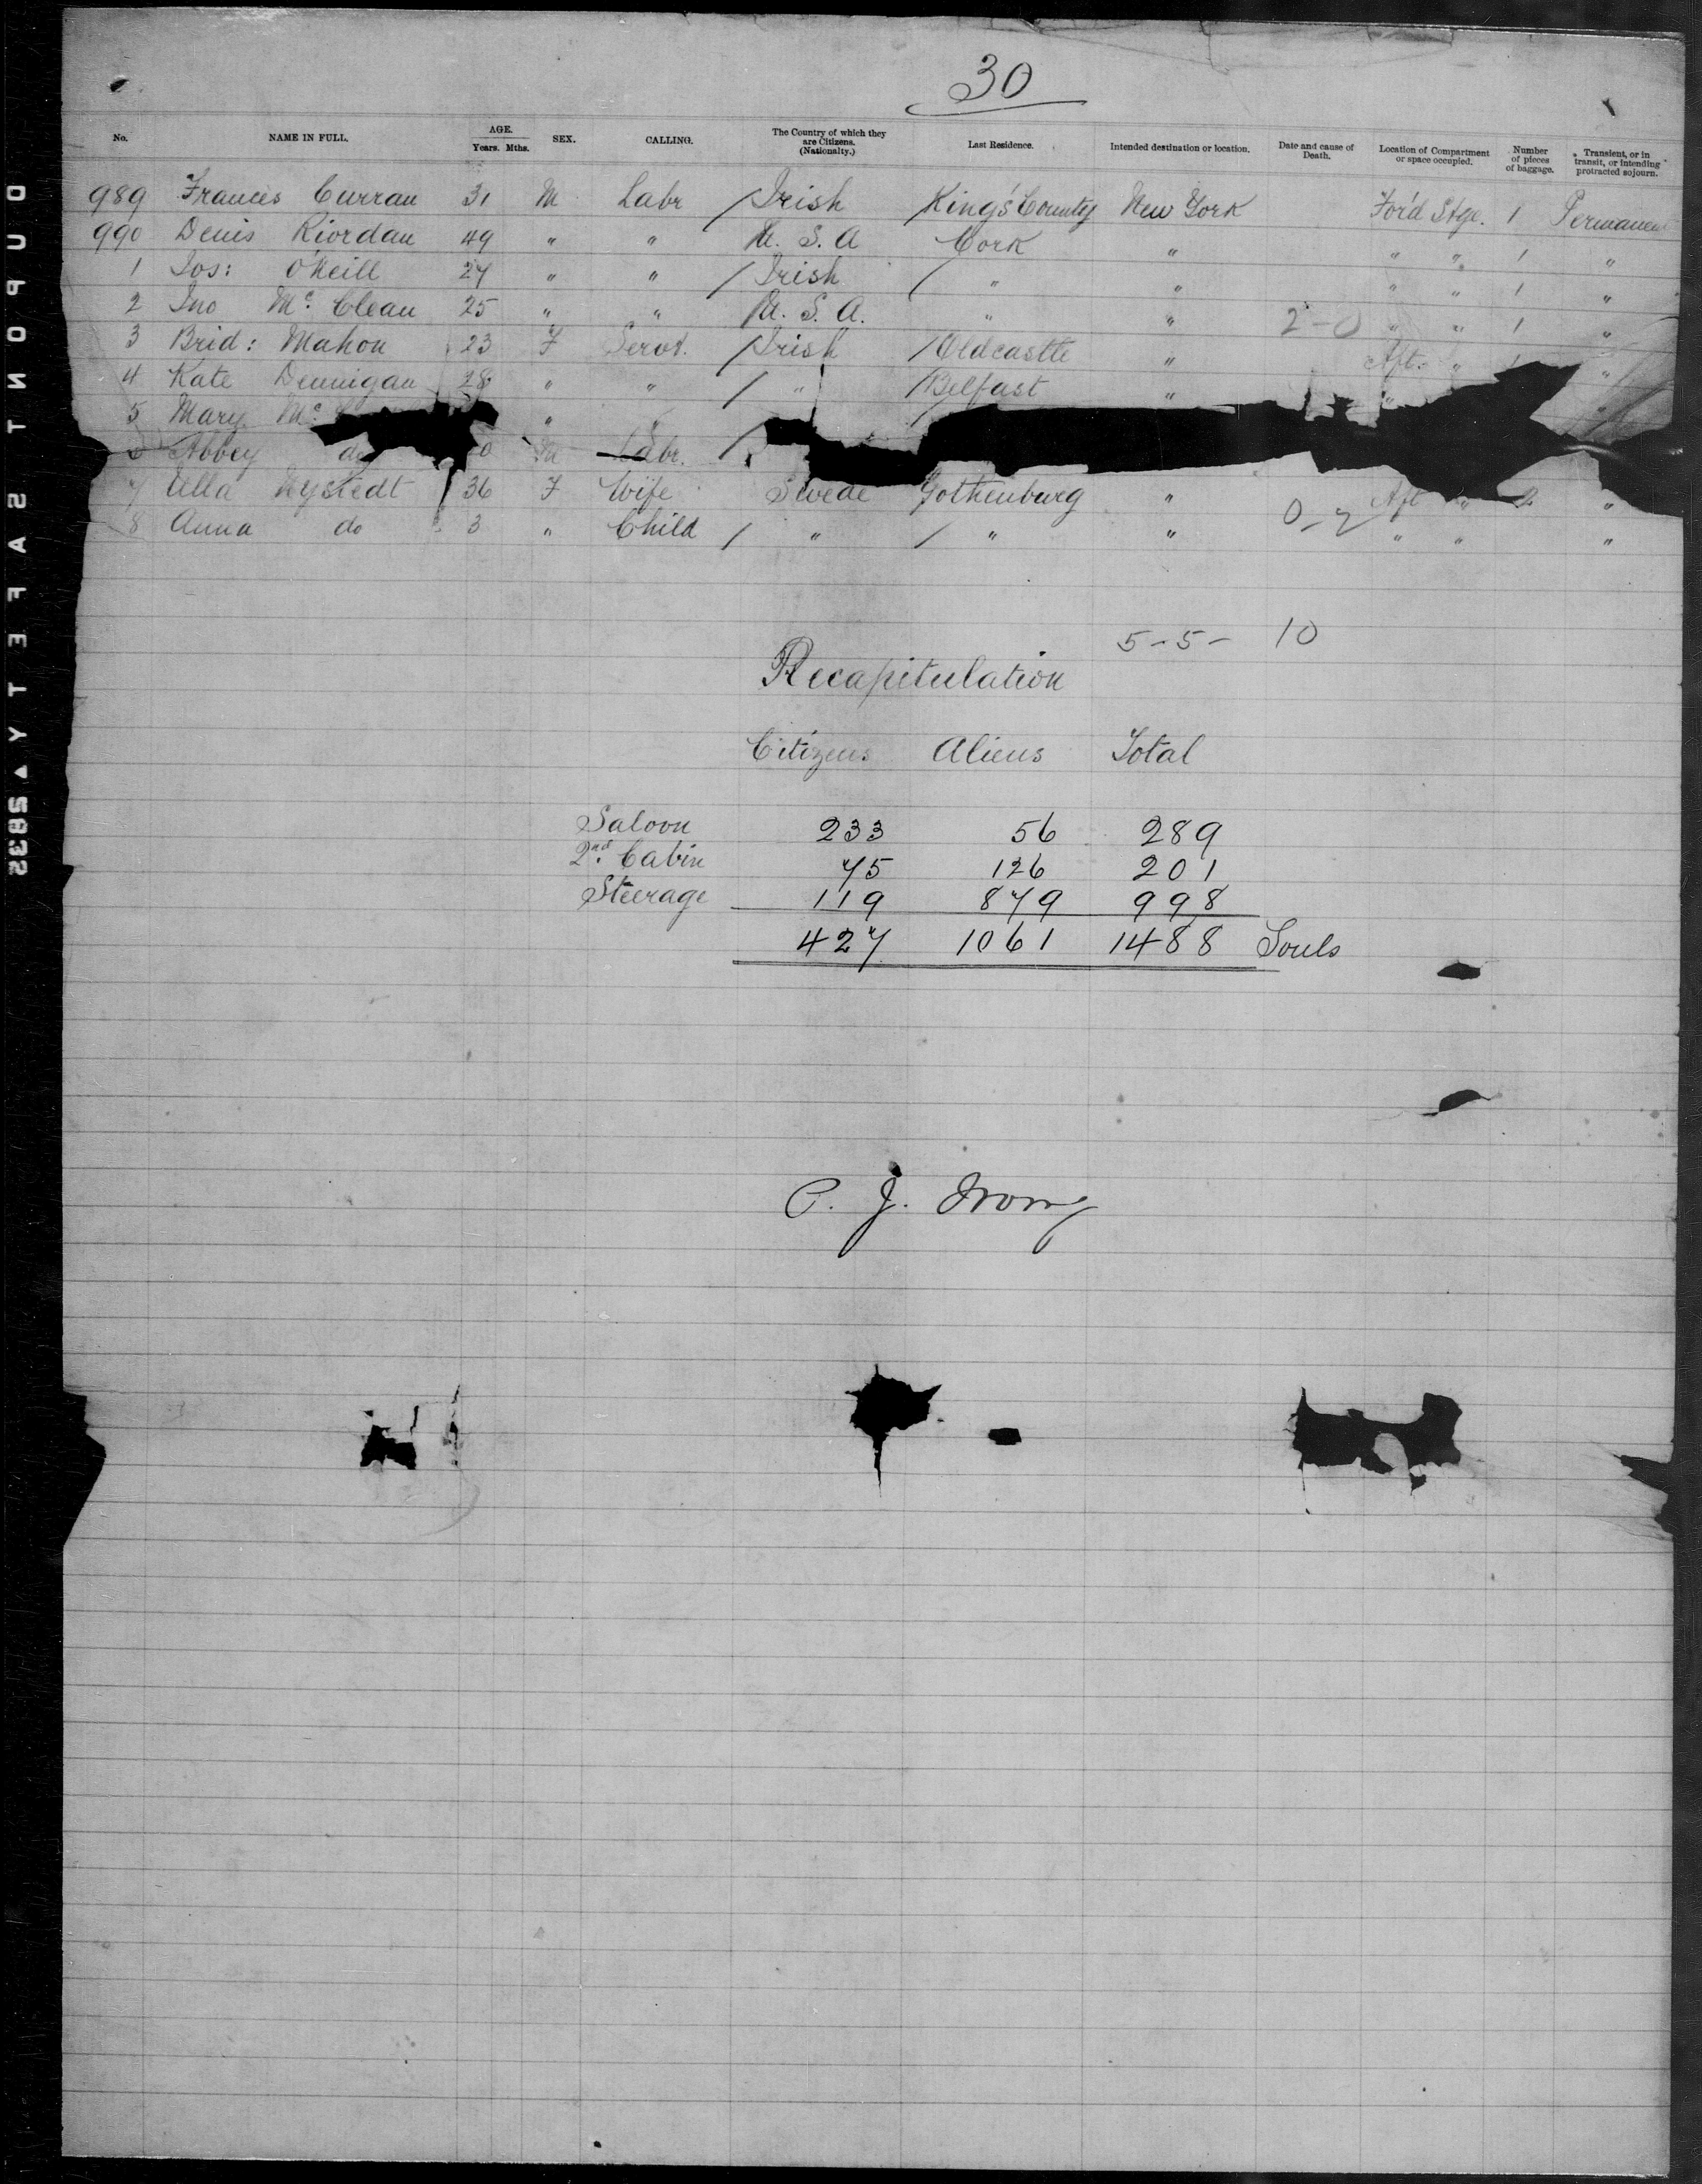 30
No. NAME IN FULL. AGE. Years. Mths. SEX. CALLING. The Country of which they are Citizens. (Nationalty.) Last Residence. Intended destination or location. Date and cause of Death. Location of Compartment or space occupied. Number of pieces of baggage. Transient, or in transit, or intending protracted sojourn.
989 Frances Curran 31 M Labr / Irish King's County New York For'd Stge. 1 Permanent
990 Denis Riordan 49 " " U. S. A Cork " " " 1 "
1 Jos: O'Neill 27 " " / Irish / " " " " 1 "
2 Jno Mc Clean 25 " " U. S. A. " " 2-0 " " 1 "
3 Brid: Mahon 23 F Servt. / Irish / Oldcastle " Aft. " 1 "
4 Kate Dennigan 28 " " / " / Belfast " " "
5 Mary Mc " " "
6 Abbey do 0 M Labr. /
7 Ulla Nystedt 36 F Wife Swede Gothenburg " Aft " 2 "
8 Anna do 3 " Child / " / " " 0-2 " " "
5-5- 10
Recapitulation
Citizens Aliens Total
Saloon 233 56 289
2nd. Cabin 75 126 201
Steerage 119 879 998
427 1061 1488 Souls
P. J. Irong
OUPONT SAFETY ◄ 5832